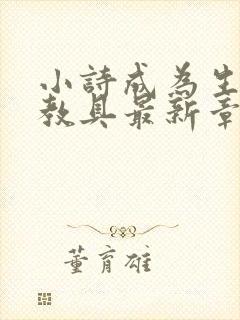 小詩成為生
教具最新章
董育雄